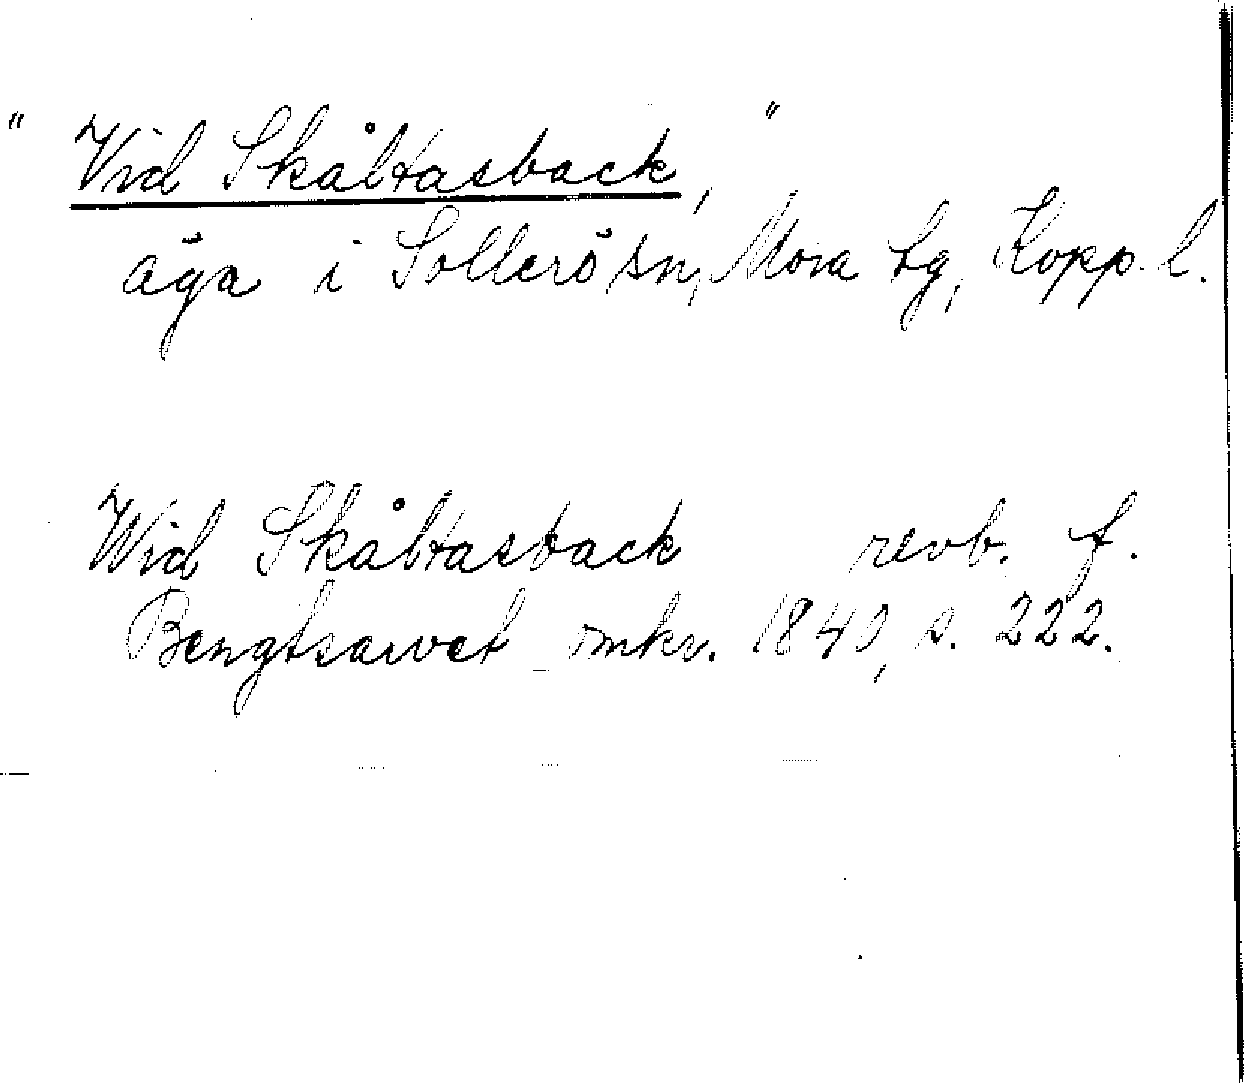 " Vid Skåltasback, "
äga i Sollerö sn, Mora tg, Kopp. l.
Wid Skåltasback revb. f.
Bengtsarvet omkr. 1840, s. 222.